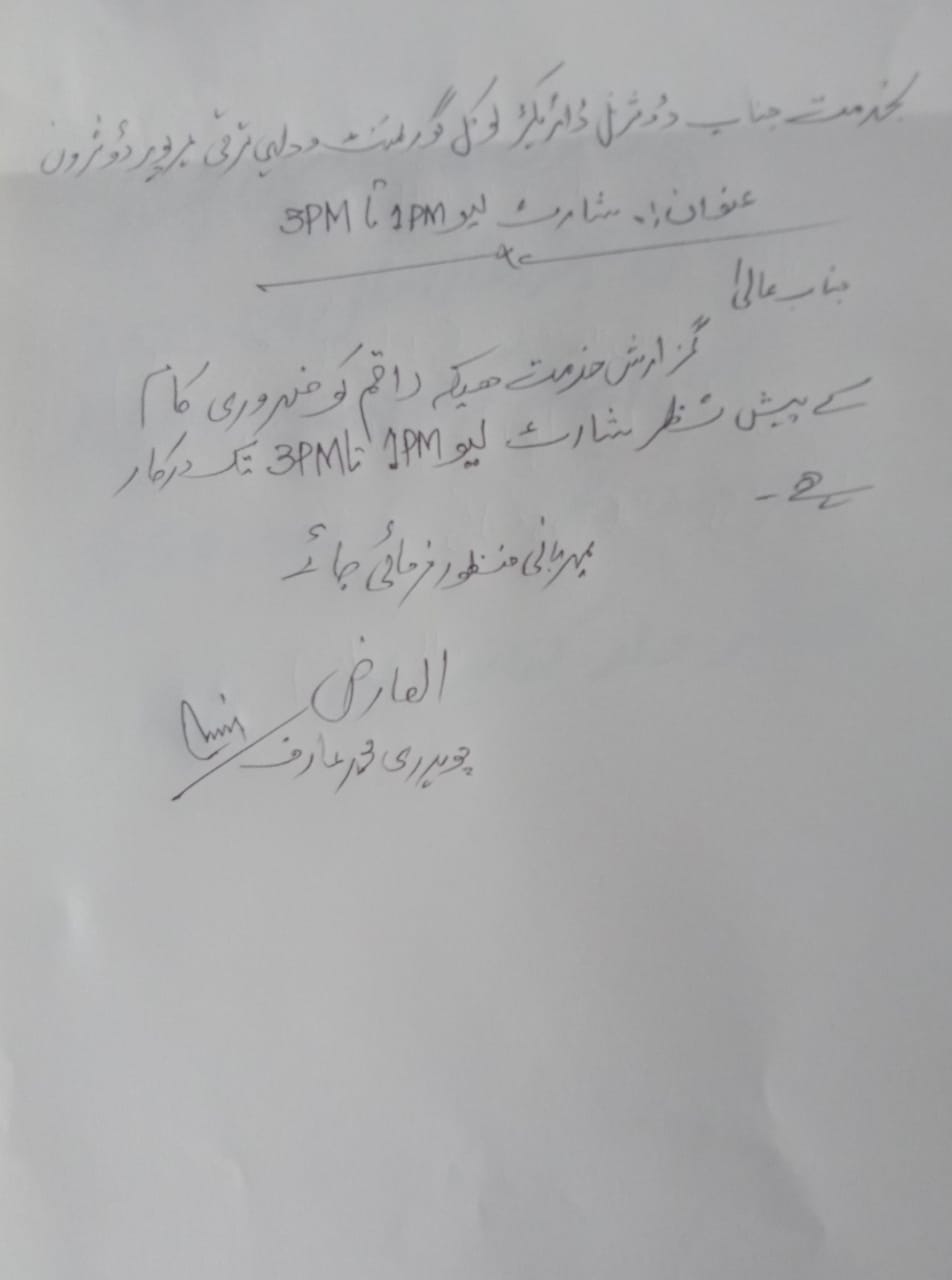 بخدمت جناب ڈویژنل ڈائریکٹر لوکل گورنمنٹ و دیہی ترقی میرپور ڈویژن
عنوان:۔ شارٹ لیو 1PM تا 3PM
جناب عالی!
گزارش خدمت ھیکہ راقم کو ضروری کام
کے پیش نظر شارٹ لیو 1PM تا 3PM تک درکار
ہے۔
مہربانی منظور فرمائی جائے
العارض
چوہدری محمد عارف